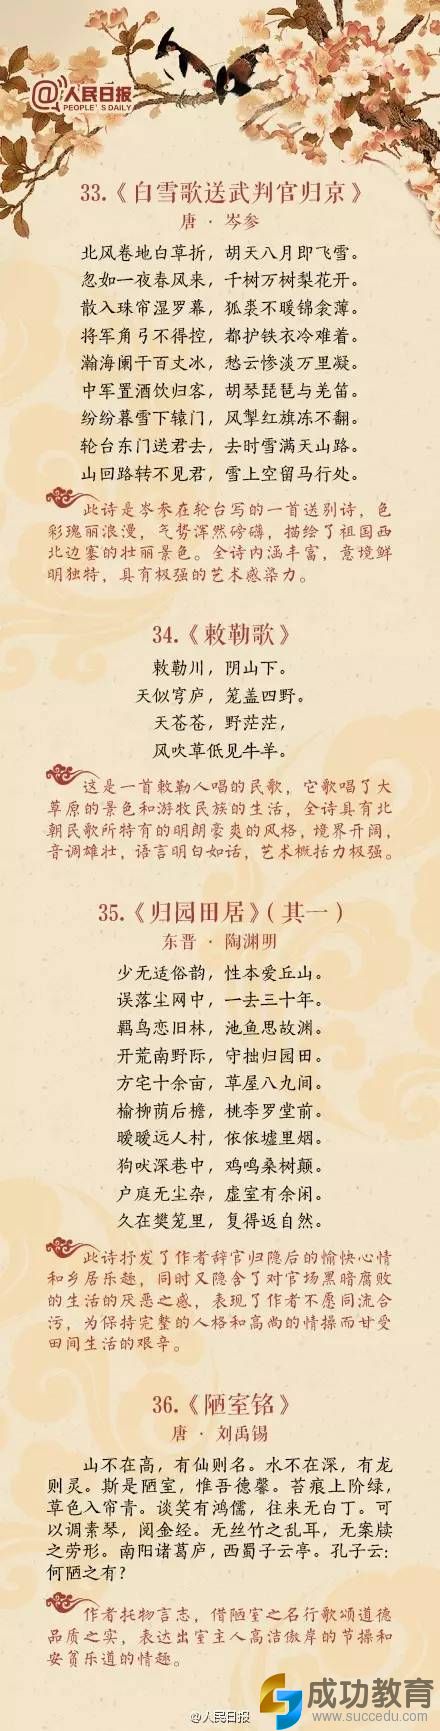 @人民日报
PEOPLE'S DAILY
33.《白雪歌送武判官归京》
唐 · 岑参
北风卷地白草折，胡天八月即飞雪。
忽如一夜春风来，千树万树梨花开。
散入珠帘湿罗幕，狐裘不暖锦衾薄。
将军角弓不得控，都护铁衣冷难着。
瀚海阑干百丈冰，愁云惨淡万里凝。
中军置酒饮归客，胡琴琵琶与羌笛。
纷纷暮雪下辕门，风掣红旗冻不翻。
轮台东门送君去，去时雪满天山路。
山回路转不见君，雪上空留马行处。
此诗是岑参在轮台写的一首送别诗，色
彩瑰丽浪漫，气势浑然磅礴，描绘了祖国西
北边塞的壮丽景色。全诗内涵丰富，意境鲜
明独特，具有极强的艺术感染力。
34.《敕勒歌》
敕勒川，阴山下。
天似穹庐，笼盖四野。
天苍苍，野茫茫，
风吹草低见牛羊。
这是一首敕勒人唱的民歌，它歌唱了大
草原的景色和游牧民族的生活，全诗具有北
朝民歌所特有的明朗豪爽的风格，境界开阔，
音调雄壮，语言明白如话，艺术概括力极强。
35.《归园田居》（其一）
东晋 · 陶渊明
少无适俗韵，性本爱丘山。
误落尘网中，一去三十年。
羁鸟恋旧林，池鱼思故渊。
开荒南野际，守拙归园田。
方宅十余亩，草屋八九间。
榆柳荫后檐，桃李罗堂前。
暧暧远人村，依依墟里烟。
狗吠深巷中，鸡鸣桑树颠。
户庭无尘杂，虚室有余闲。
久在樊笼里，复得返自然。
此诗抒发了作者辞官归隐后的愉快心情
和乡居乐趣，同时又隐含了对官场黑暗腐败
的生活的厌恶之感，表现了作者不愿同流合
污，为保持完整的人格和高尚的情操而甘受
田间生活的艰辛。
36.《陋室铭》
唐 · 刘禹锡
山不在高，有仙则名。水不在深，有龙
则灵。斯是陋室，惟吾德馨。苔痕上阶绿，
草色入帘青。谈笑有鸿儒，往来无白丁。可
以调素琴，阅金经。无丝竹之乱耳，无案牍
之劳形。南阳诸葛庐，西蜀子云亭。孔子云：
何陋之有？
作者托物言志，借陋室之名行歌颂道德
品质之实，表达出室主人高洁傲岸的节操和
安贫乐道的情趣。
@人民日报
成功教育
www.succedu.com